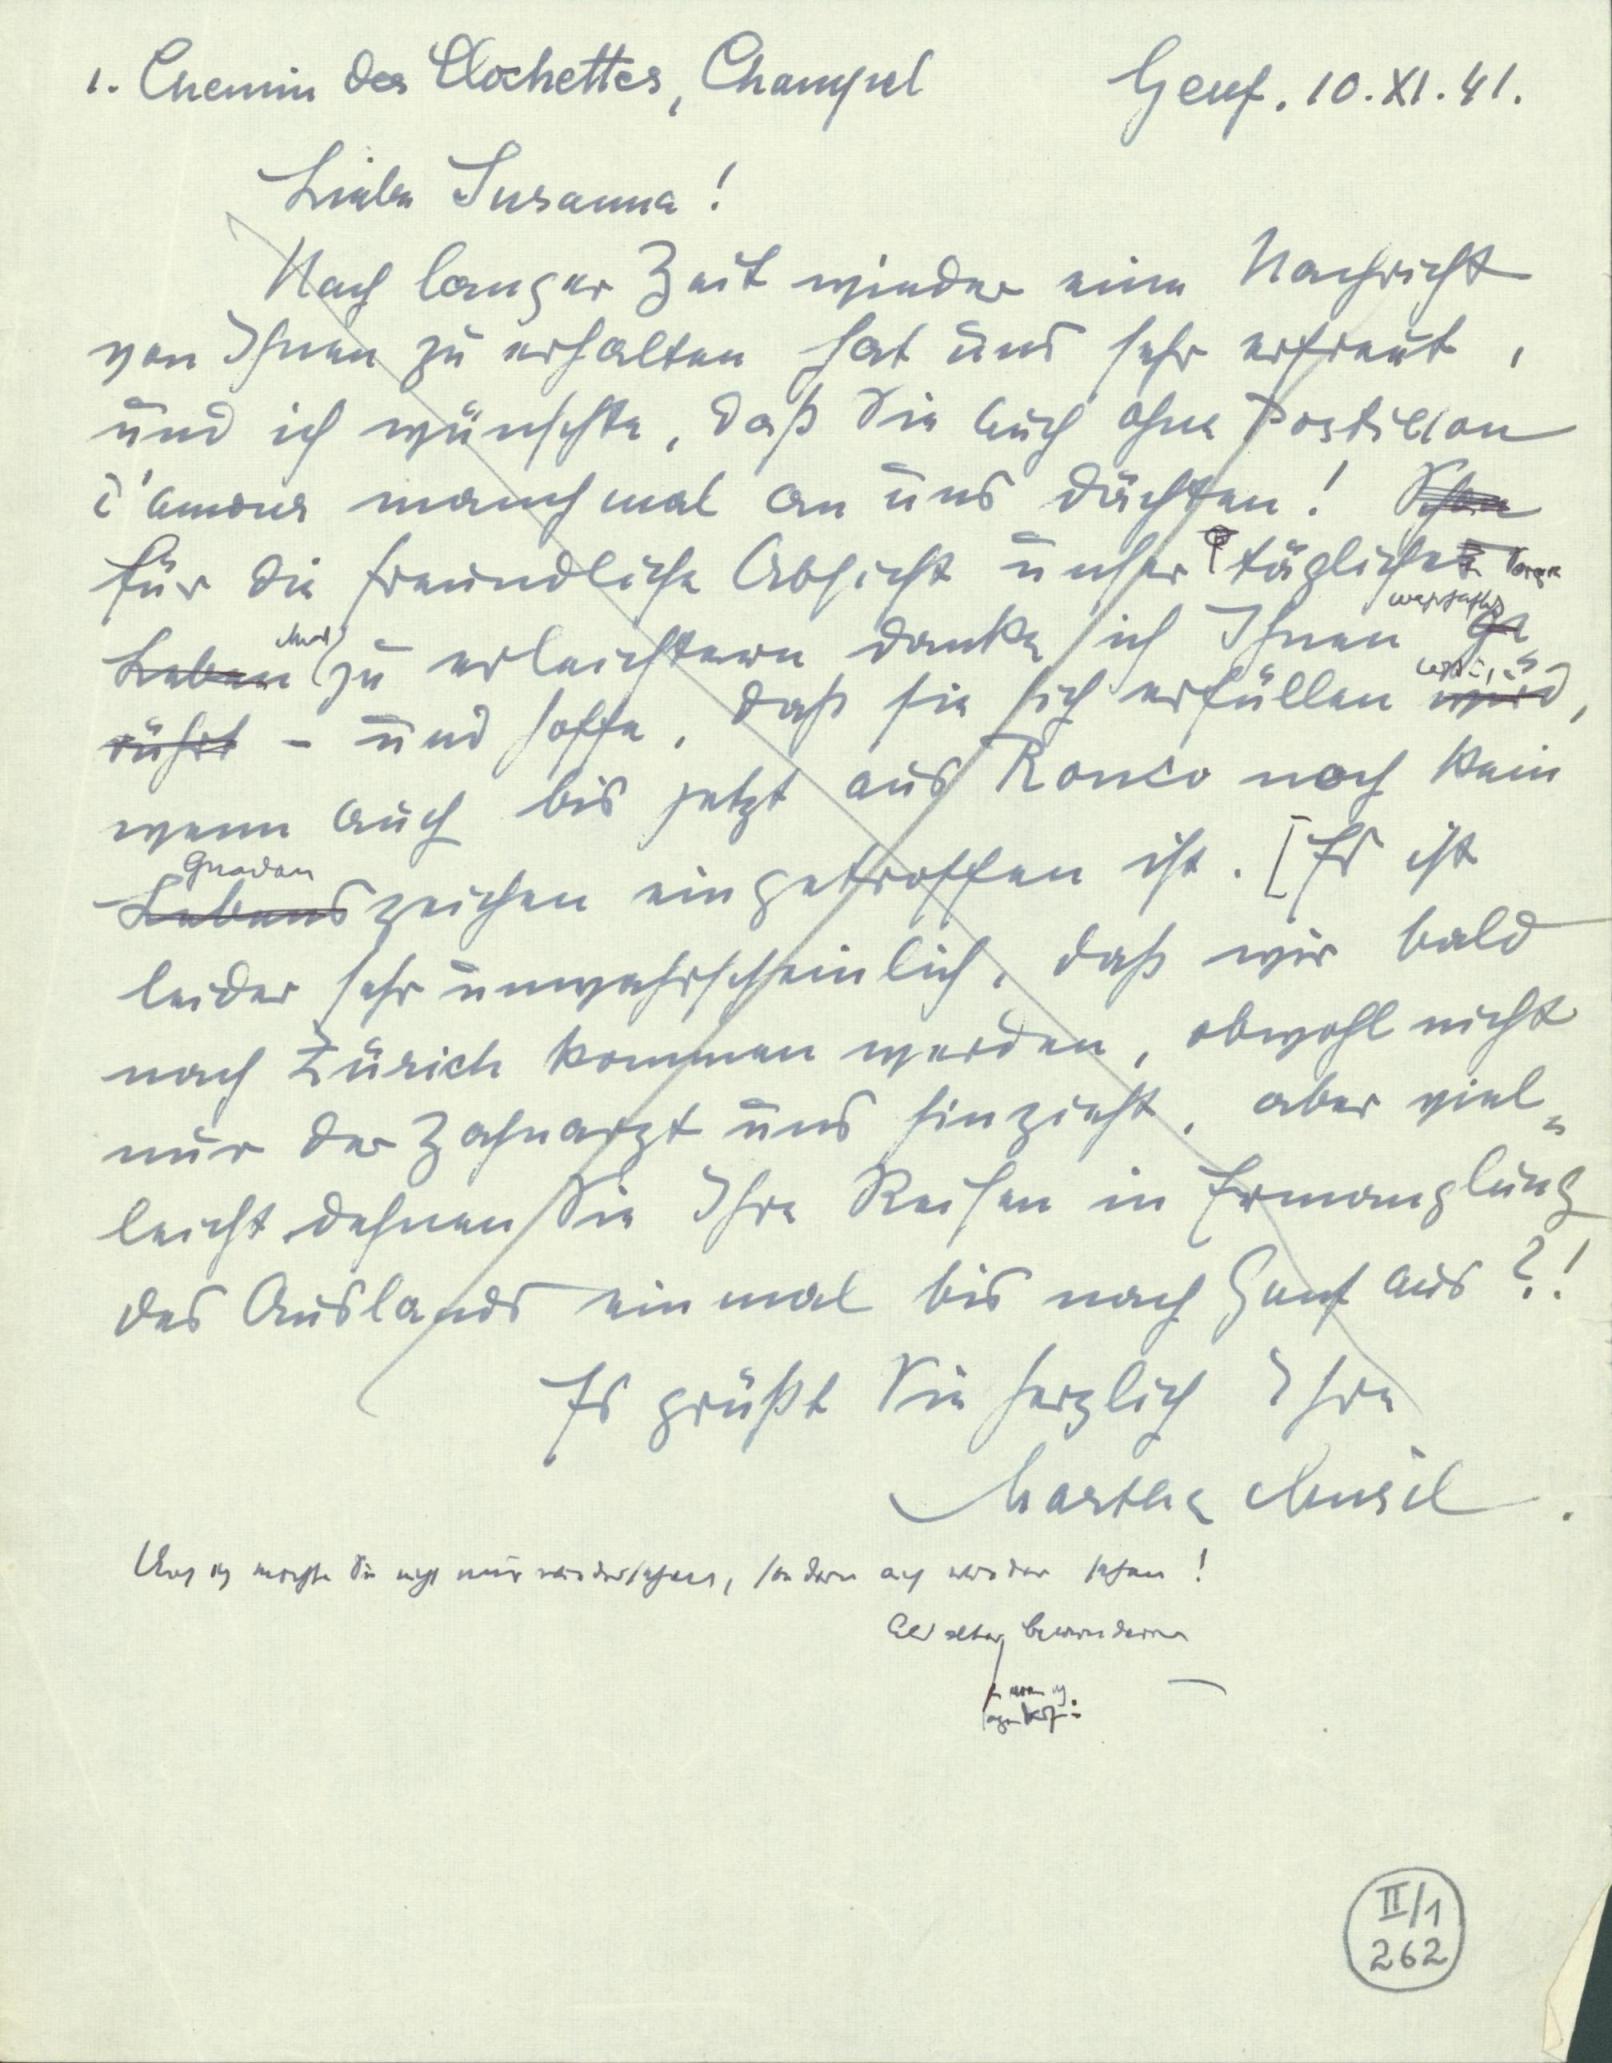 1. Chemin des Clochettes, Champel Genf. 10.XI.41.
Liebe Susanna!
Nach langer Zeit wieder eine Nachricht
von Ihnen zu erhalten hat uns sehr erfreut,
und ich wünschte, daß Sie auch ohne Postillon
d'amour manchmal an uns dächten! Schon
für die freundliche Absicht unser tägliches Sorge
Leben zu erleichtern danke ich Ihnen ge
rührt - und hoffe, daß sie sich erfüllen wird,
wenn auch bis jetzt aus Ronco noch kein
Gnaden
Lebenszeichen eingetroffen ist. [Es ist
leider sehr unwahrscheinlich, daß wir bald
nach Zürich kommen werden, obwohl nicht
nur der Zahnarzt uns hinzieht, aber viel=
leicht dehnen Sie Ihre Reisen in Ermanglung
des Auslands einmal bis nach Genf aus?!
Es grüßt Sie herzlich Ihre
Martha Musil.
Auch ich möchte Sie nicht nur wiedersehen, sondern auch wieder sehen!
bewundern
II/1
262